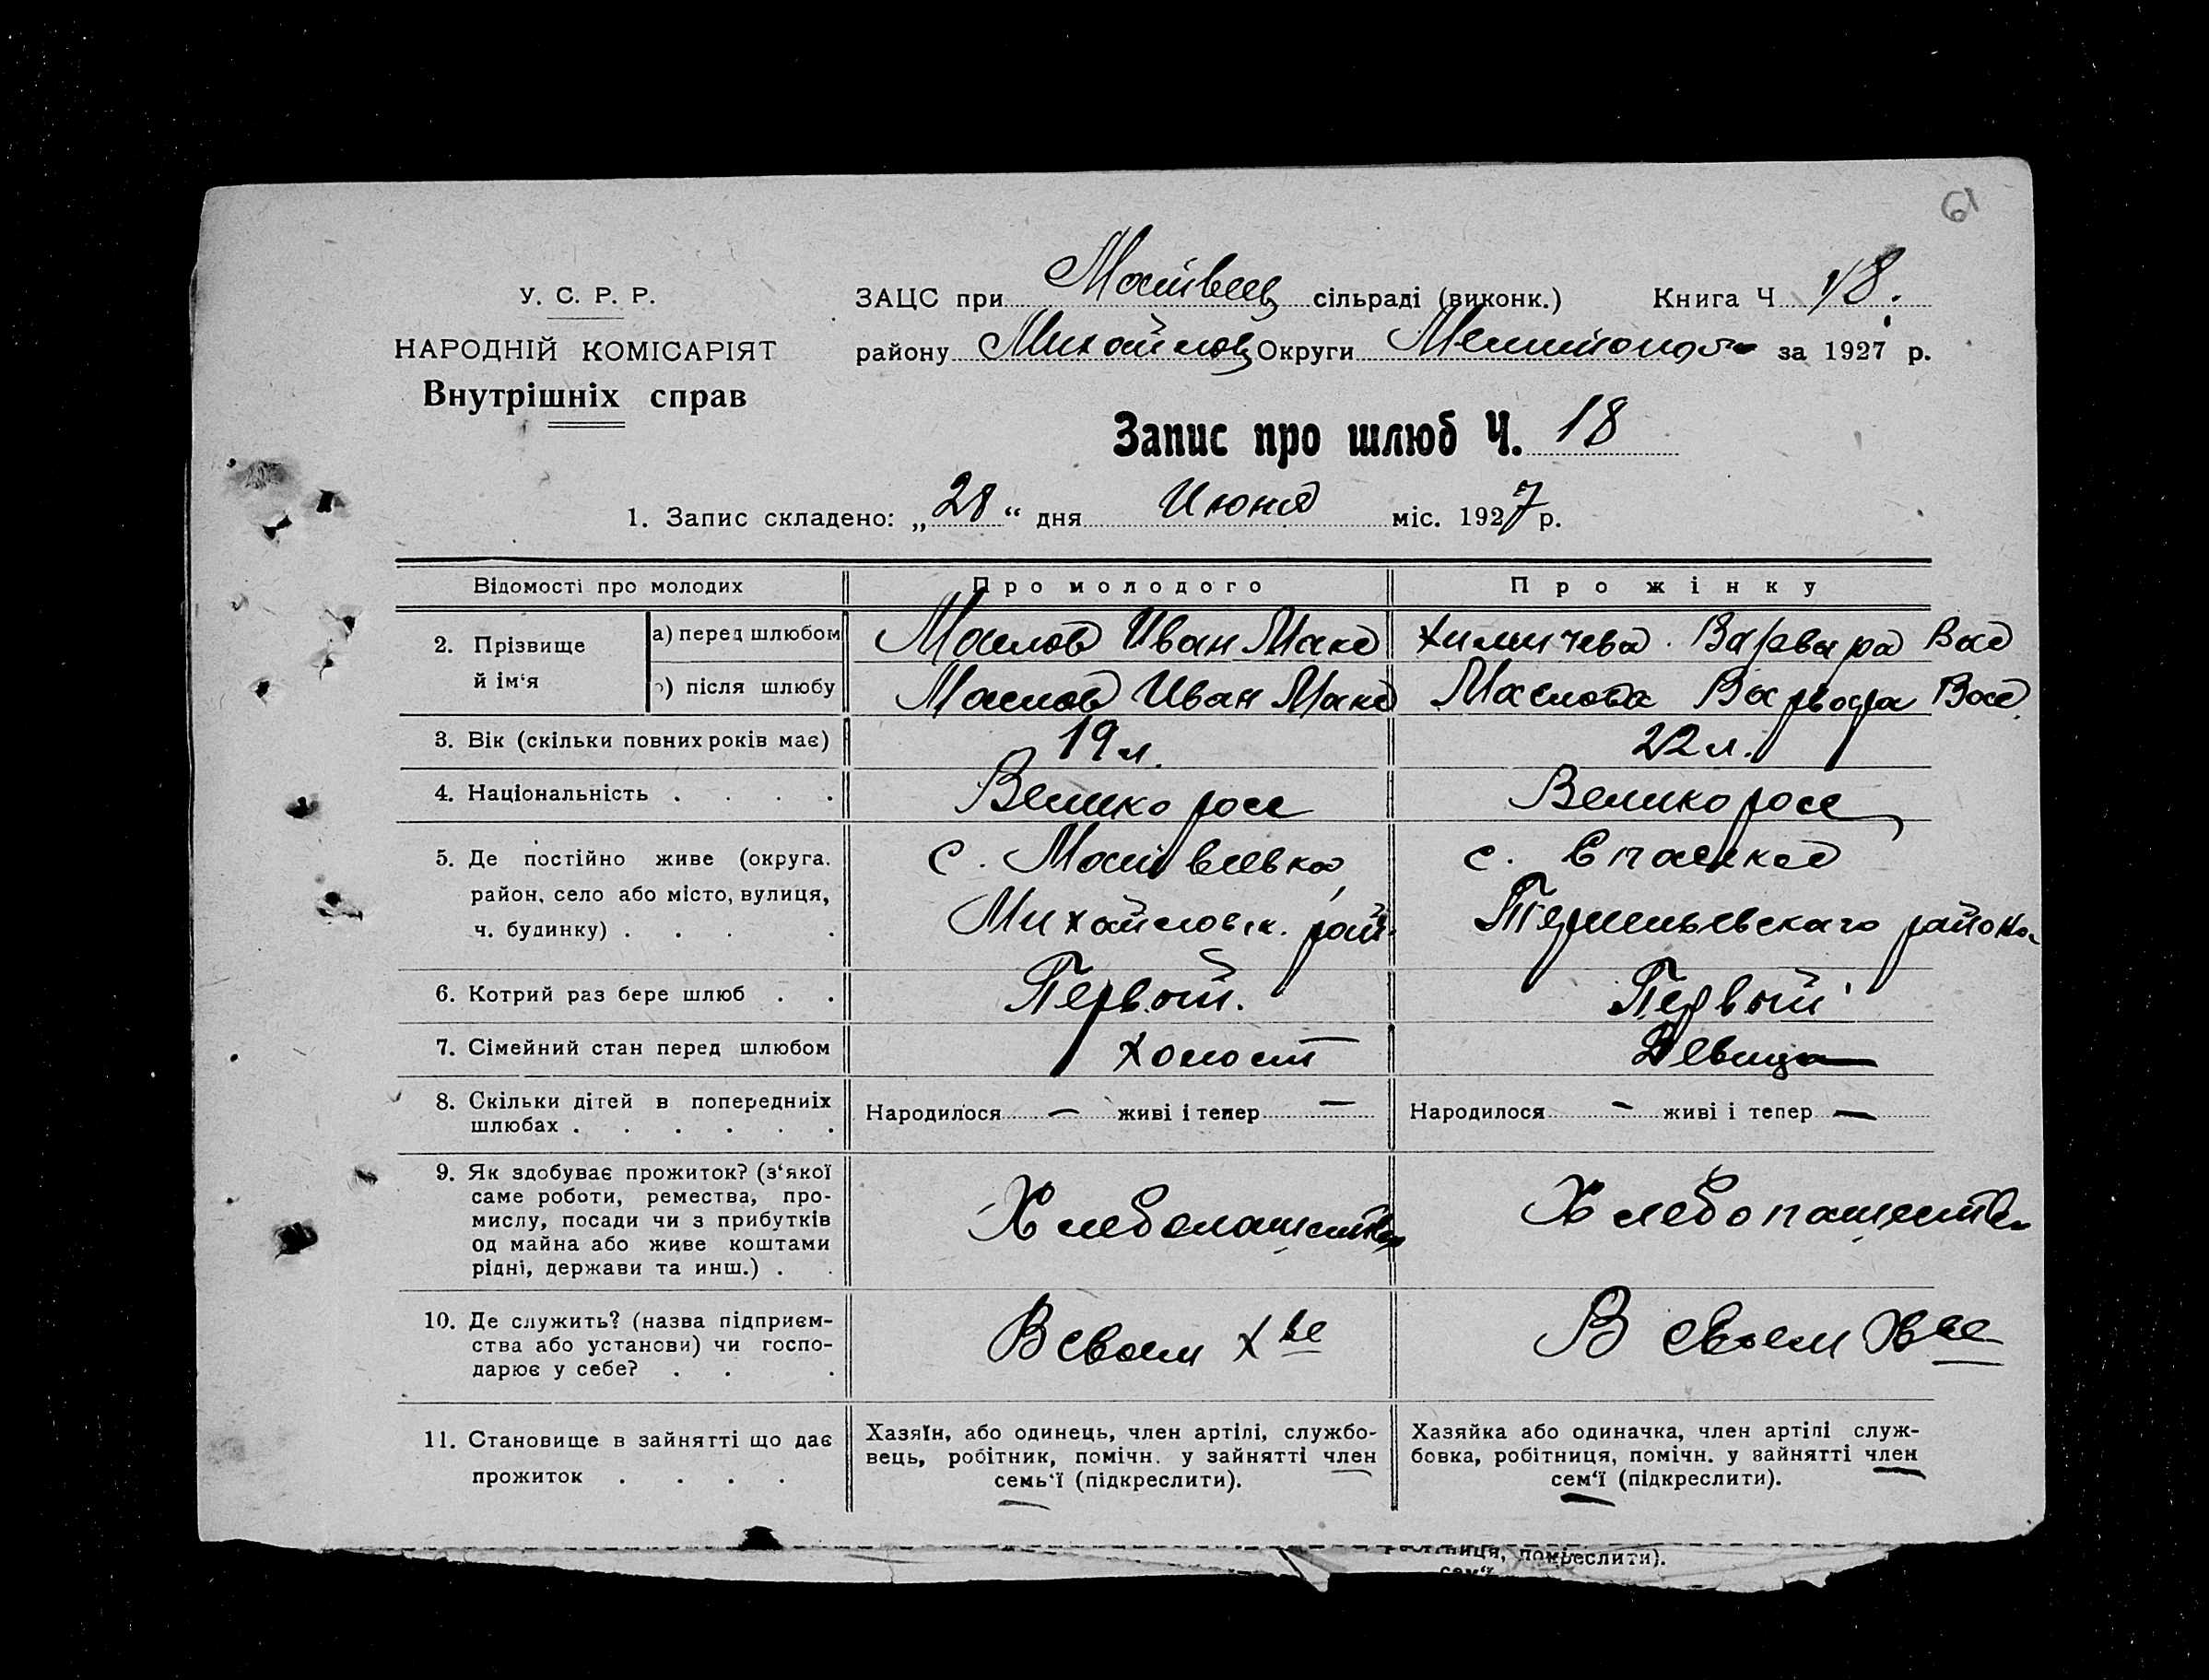 61
У. С. Р. Р.
НАРОДНІЙ КОМІСАРІЯТ
Внутрішніх справ
ЗАЦС при Матвеев сільраді (виконк.) Книга Ч 18.
району Михайлов Округи Мелитопол за 1927 р.
Запис про шлюб Ч. 18
1. Запис складено: „28“ дня Июня міс. 1927 р.
Відомості про молодих Про молодого Про жінку
2. Прізвище й ім‘я
а) перед шлюбом Маслов Иван Макс Химичева Варвара Вас
б) після шлюбу Маслов Иван Макс Маслова Варвара Вас
3. Вік (скільки повних років має) 19 л. 22 л.
4. Національність . . . . Великоросс Великоросс
5. Де постійно живе (округа, с. Матвеевка с. Спасское
район, село або місто, вулиця, Михайловск. рай. Терпеньевскаго района
ч. будинку) . . . .
6. Котрий раз бере шлюб . . Первый. Первый
7. Сімейний стан перед шлюбом Холост Девица
8. Скільки дітей в попередниіх Народилося — живі і тепер — Народилося — живі і тепер —
шлюбах . . . . . .
9. Як здобуває прожиток? (з‘якої
саме роботи, ремества, про- Хлебопашество Хлебопашество
мислу, посади чи з прибутків
од майна або живе коштами
рідні, держави та инш.) . .
10. Де служить? (назва підприєм-
ства або установи) чи госпо- В своем х-ве В своем хве
дарює у себе? . . .
11. Становище в зайнятті що дає
прожиток . . . .
Хазяїн, або одинець, член артілі, службо-
вець, робітник, помічн. у зайнятті член
семь‘ї (підкреслити).
Хазяйка або одиначка, член артілі служ-
бовка, робітниця, помічн. у зайнятті член
сем‘ї (підкреслити).